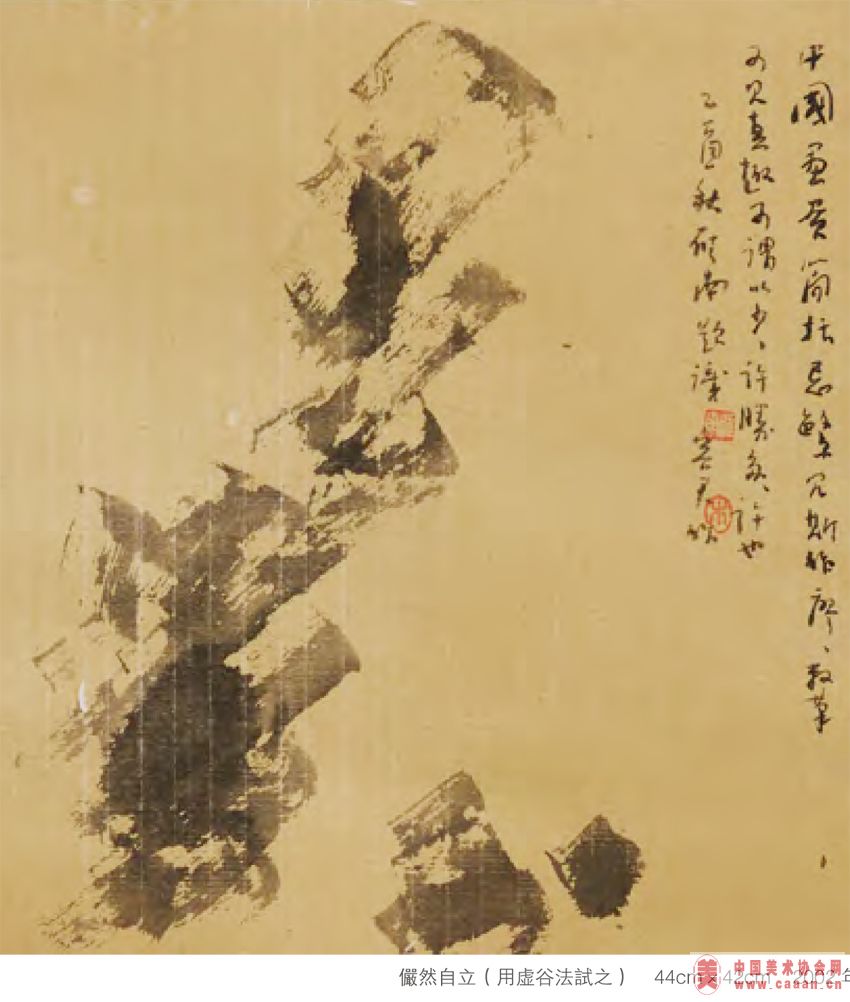 中國画貴簡括忌繁冗斯作廖、數筆
可見真趣可謂以少、許勝多、許也
乙酉秋硯南題識
儼然自立（用虛谷法試之） 44cm×42cm 2002年
中国美术协会网
www.caaan.cn